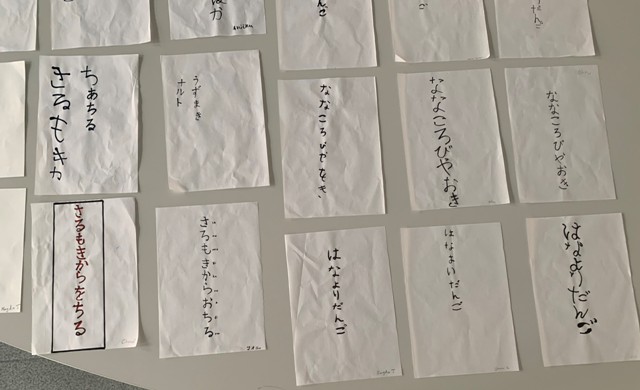 んご
ご
だんご
さるもきか
らおちる
うずまき
ナルト
ななころびやおき
ななころびやおき
ななころびやおき
さるもきからをちる
さるもきからおちる
はなよりだんご
はなよりだんご
はなよりだんご